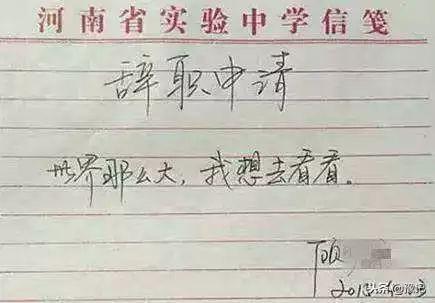 河南省实验中学信笺
辞职申请
世界那么大，我想去看看。
顾
头条 @豫记